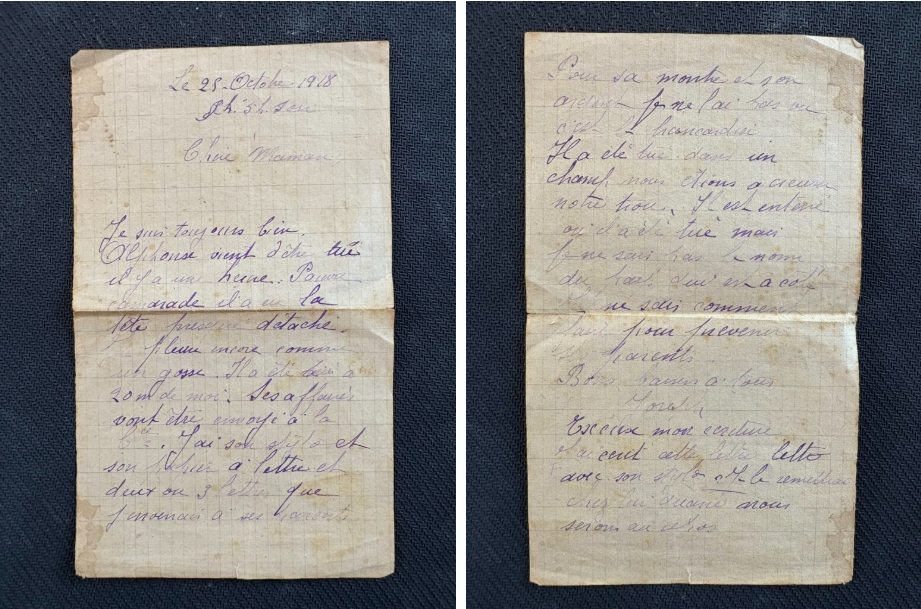 Le 25 Octobre 1918
5h. soir
Chère Maman
Je suis toujours bien.
Alphonse vient d'être tué
il y a une heure. Pauvre
camarade il a eu la
tête presque détaché.
pleure encore comme
un gosse. Il a été tué a
20m de moi. Ses affaires
vont être envoyé à la
J'ai son stylo et
son à lettre et
deux ou 3 lettres que
j'envenrai à ses parents
Pour sa montre et son
argent je ne l'ai pas vu
c'est le brancardier
Il a été tué dans un
champ nous étions a creuser
notre trou. Il est enterré
ou il a été tué mais
je ne sais pas le nom
du qui est a coté
ne sais comment
faire pour prevenir
parents
Bons baisers a tous
Excuse mon ecriture
J'ai ecrit cette lettre lettre
avec son stylo Je le remettrai
chez lui quant nous
serons au repos